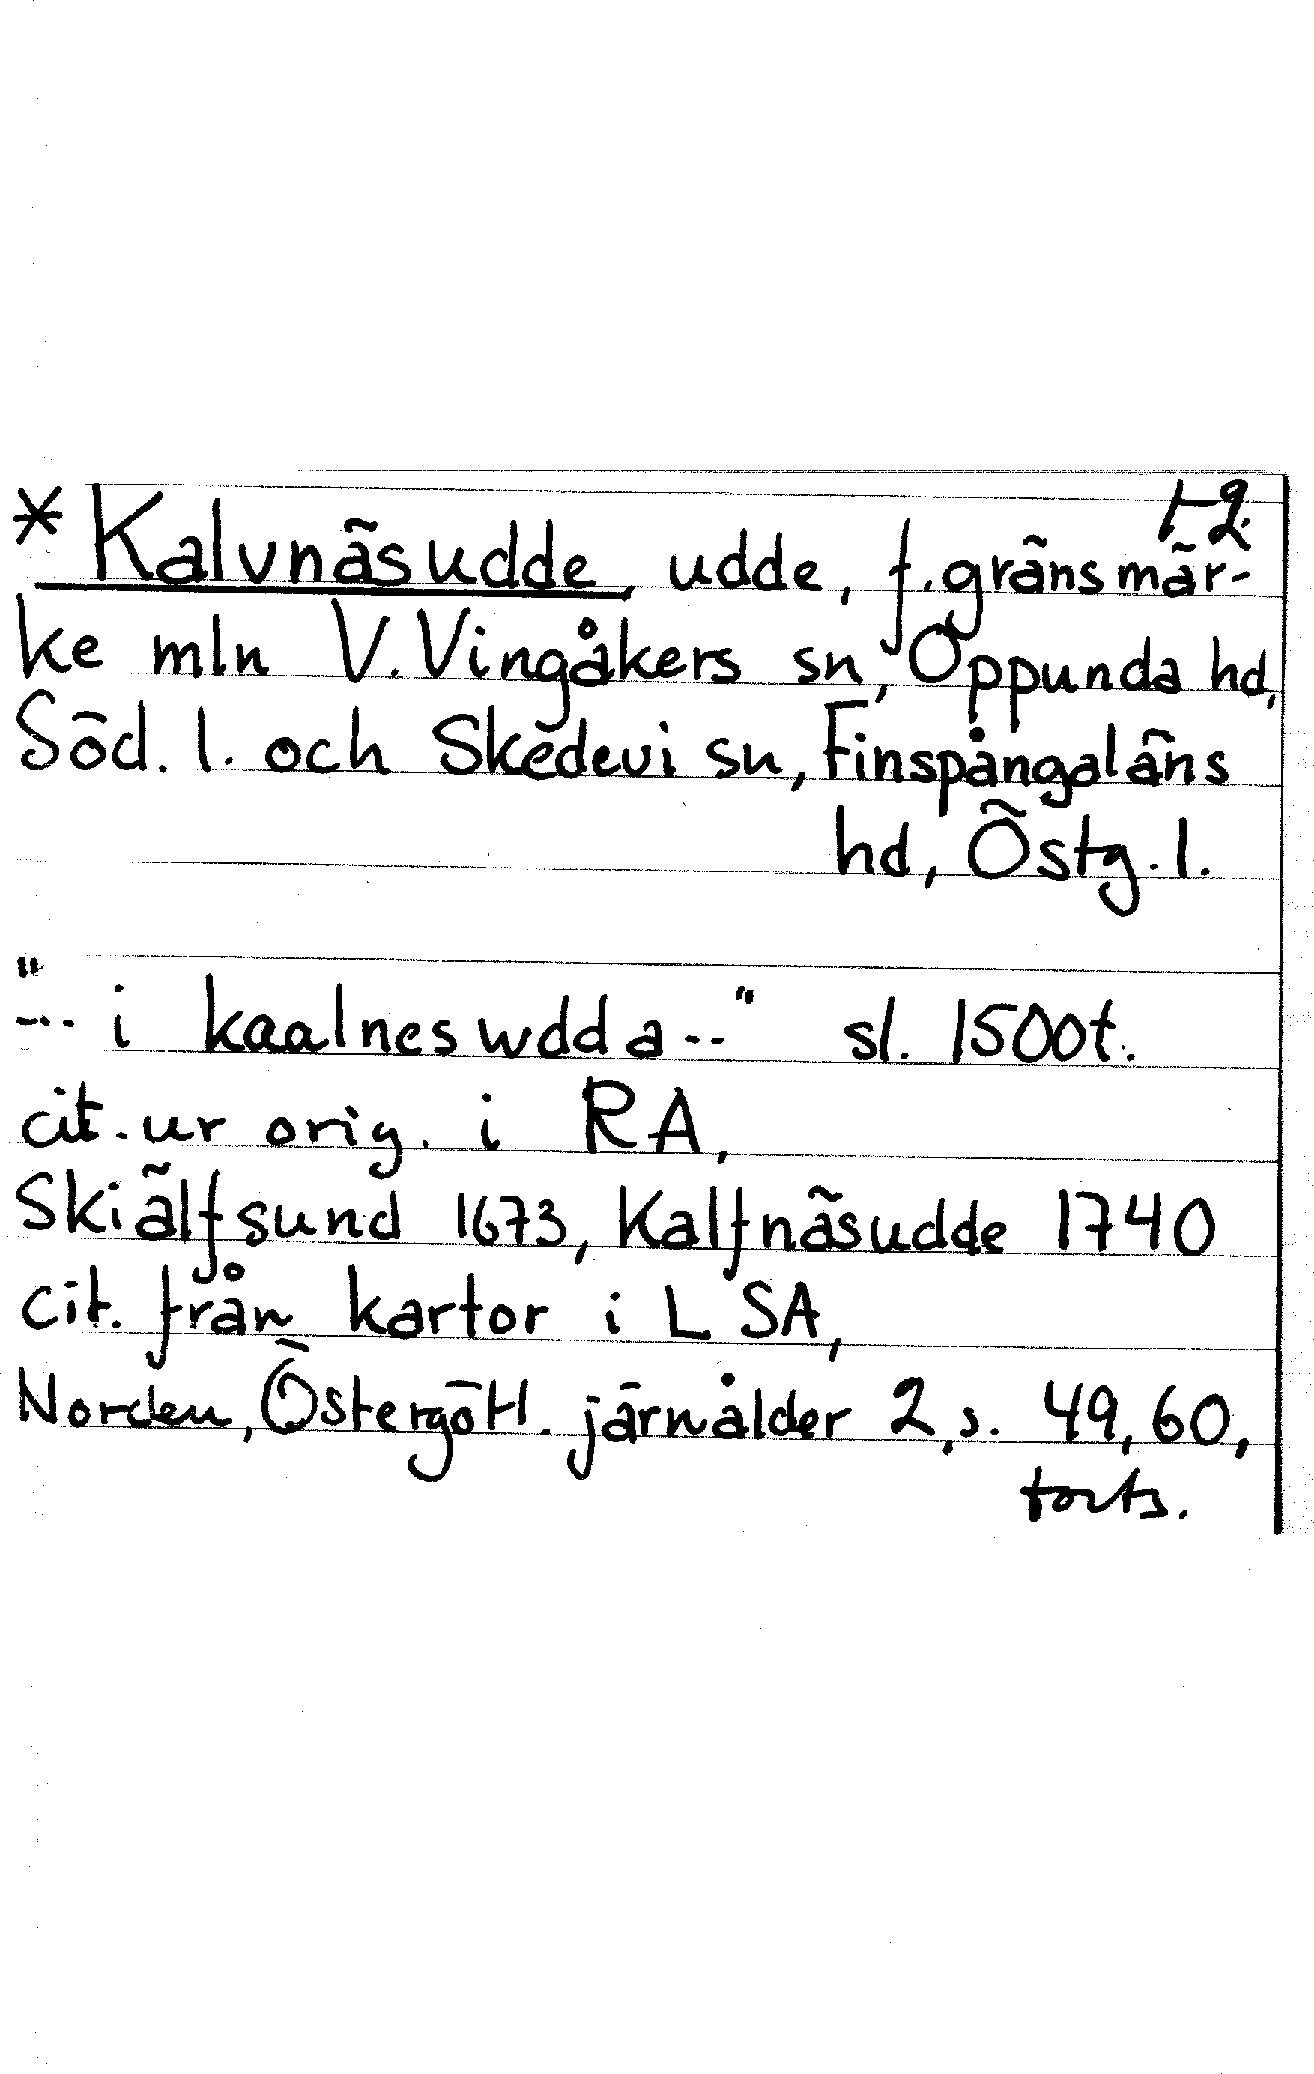 1-2.
* Kalvnäsudde, udde, f. gränsmär-
ke mln V. Vingåkers sn, Oppunda hd,
Söd. l. och Skedevi sn, Finspångaläns
hd, Östg. l.
"--- i kaalneswdda --" sl. 1500t.
cit. ur orig. i RA,
Skiälfsund 1673, Kalfnäsudde 1740
cit. från kartor i LSA,
Norden, Östergötl. järnålder 2, s. 49, 60,
forts.